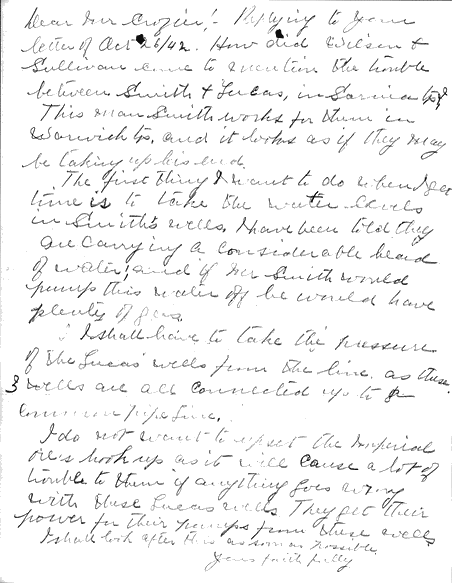 Dear Mr Crozier:- Replying to your
letter of Oct 26/42. How did Wilson &
Sullivan come to mention the trouble
between Smith & Lucas, in Sarnia tp?
This man Smith works for them in
Warwick tp. and it looks as if they may
be taking up his end.
The first thing I want to do when I get
time is to take the water levels
in Smith's wells. I have been told they
are carrying a considerable head
of water, and if Mr Smith would
pump this water off he would have
plenty of gas.
I shall have to take the pressure
of the Lucas wells from the line. as these
3 wells are all connected up to a
common pipe line.
I do not want to upset the Imperial
Oil's hook up as it will cause a lot of
trouble to them if anything goes wrong
with these Lucas wells They get their
power for their pumps from these wells
I shall look after this as soon as possible.
Yours faithfully